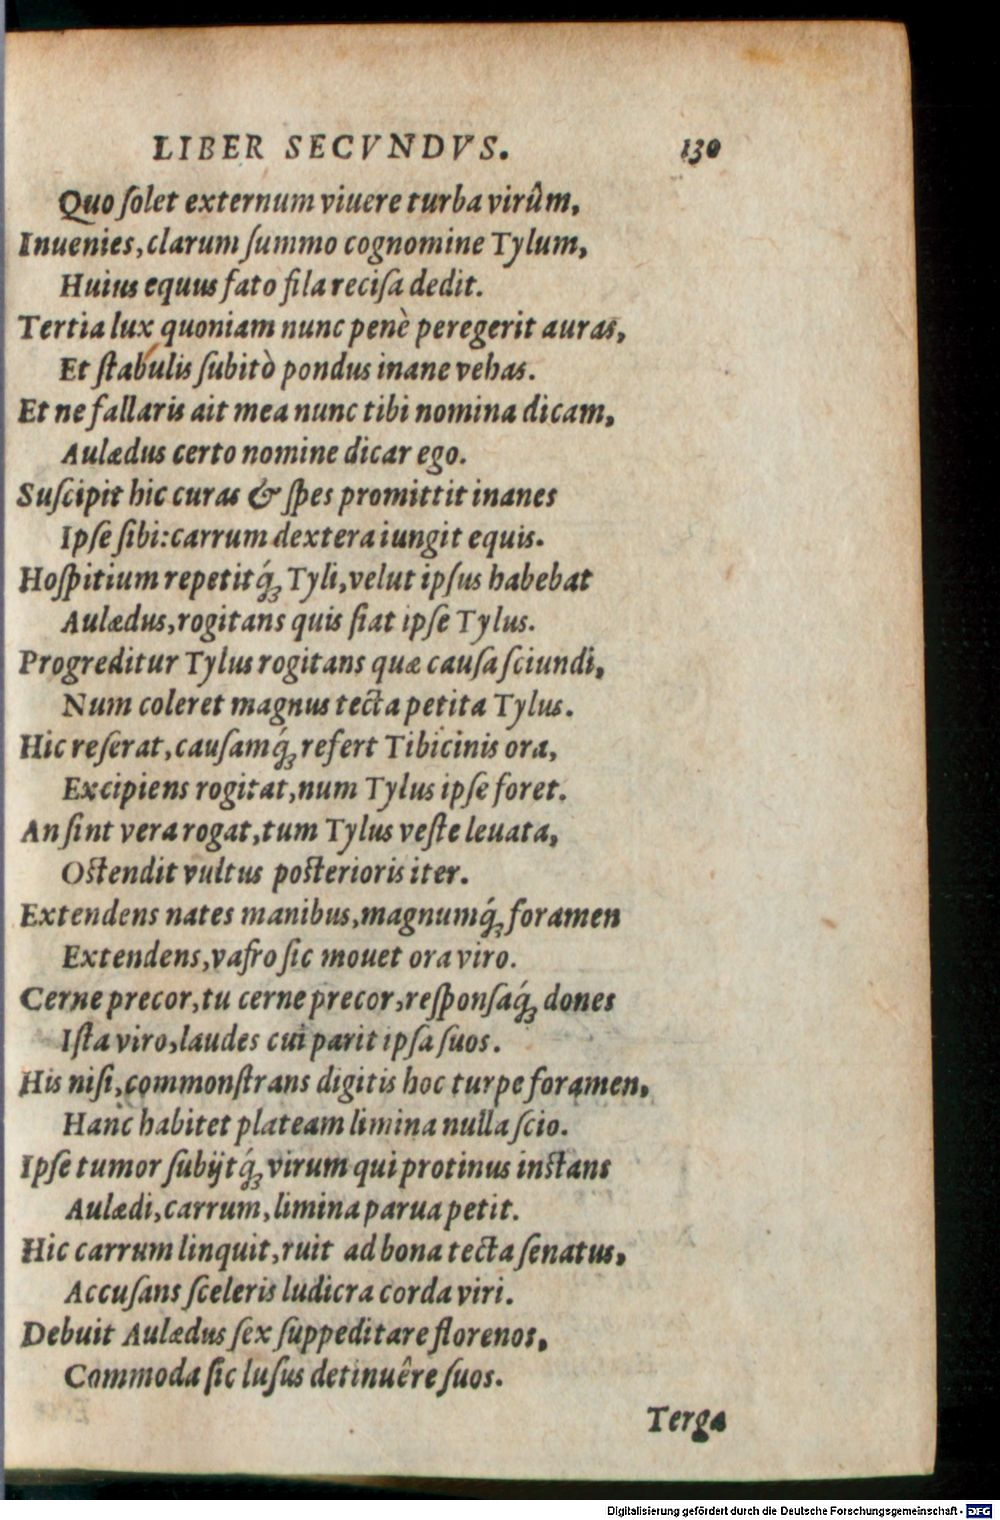 LIBER SECVNDVS. 130
Quo ſolet externum viuere turba virûm,
Inuenies, clarum ſummo cognomine Tylum,
Huius equus fato fila reciſa dedit.
Tertia lux quoniam nunc penè peregerit auras,
Et ſtabulis ſubitò pondus inane vehas.
Et ne fallaris ait mea nunc tibi nomina dicam,
Aulædus certo nomine dicar ego.
Suſcipit hic curas & ſpes promittit inanes
Ipſe ſibi: carrum dextera iungit equis.
Hoſpitium repetitq́ꝫ Tyli, velut ipſus habebat
Aulædus, rogitans quis fiat ipſe Tylus.
Progreditur Tylus rogitans quæ cauſa ſciundi,
Num coleret magnus tecta petita Tylus.
Hic reſerat, cauſamq́ꝫ refert Tibicinis ora,
Excipiens rogitat, num Tylus ipſe foret.
An ſint vera rogat, tum Tylus veſte leuata,
Oſtendit vultus poſterioris iter.
Extendens nates manibus, magnumq́ꝫ foramen
Extendens, vafro ſic mouet ora viro.
Cerne precor, tu cerne precor, reſponſaq́ꝫ dones
Iſta viro, laudes cui parit ipſa ſuos.
His niſi, commonſtrans digitis hoc turpe foramen,
Hanc habitet plateam limina nulla ſcio.
Ipſe tumor ſubijtq́ꝫ virum qui protinus inſtans
Aulædi, carrum, limina parua petit.
Hic carrum linquit, ruit ad bona tecta ſenatus,
Accuſans ſceleris ludicra corda viri.
Debuit Aulædus ſex ſuppeditare florenos,
Commoda ſic luſus detinuêre ſuos.
Terga
Digitalisierung gefördert durch die Deutsche Forschungsgemeinschaft - DFG